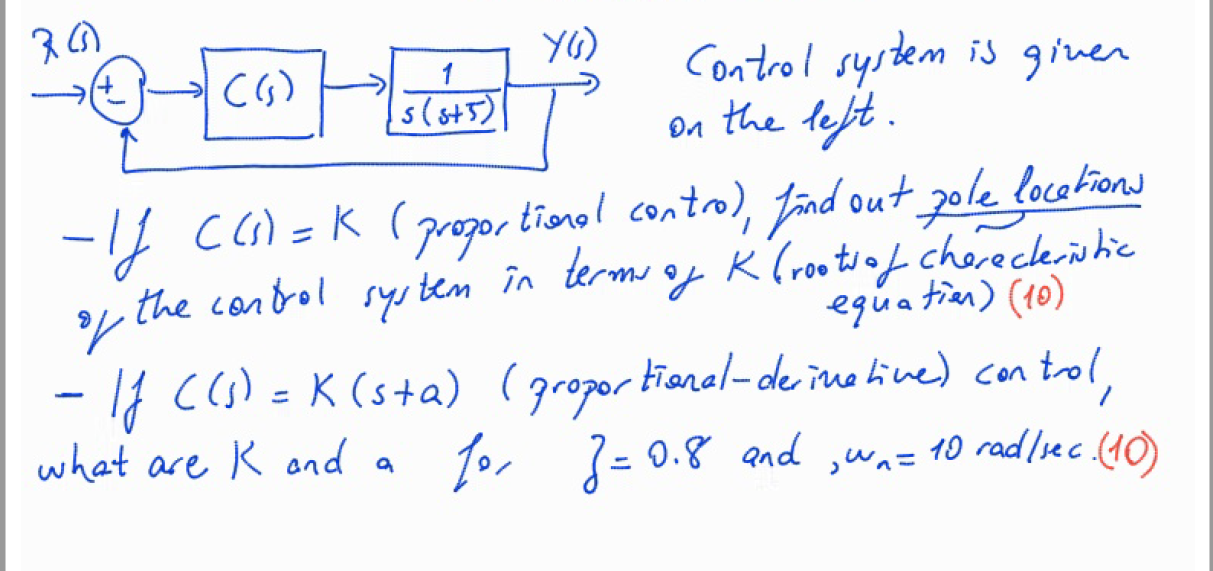 R(s)
Y(s)
+
-
C(s)
1
s(s+5)
Control system is given
on the left.
- If C(s) = K (proportional control), find out pole locations
of the control system in terms of K (roots of charecteristic
equation) (10)
- If C(s) = K(s+a) (proportional-derivative) control,
what are K and a for ζ = 0.8 and , wn = 10 rad/sec. (10)